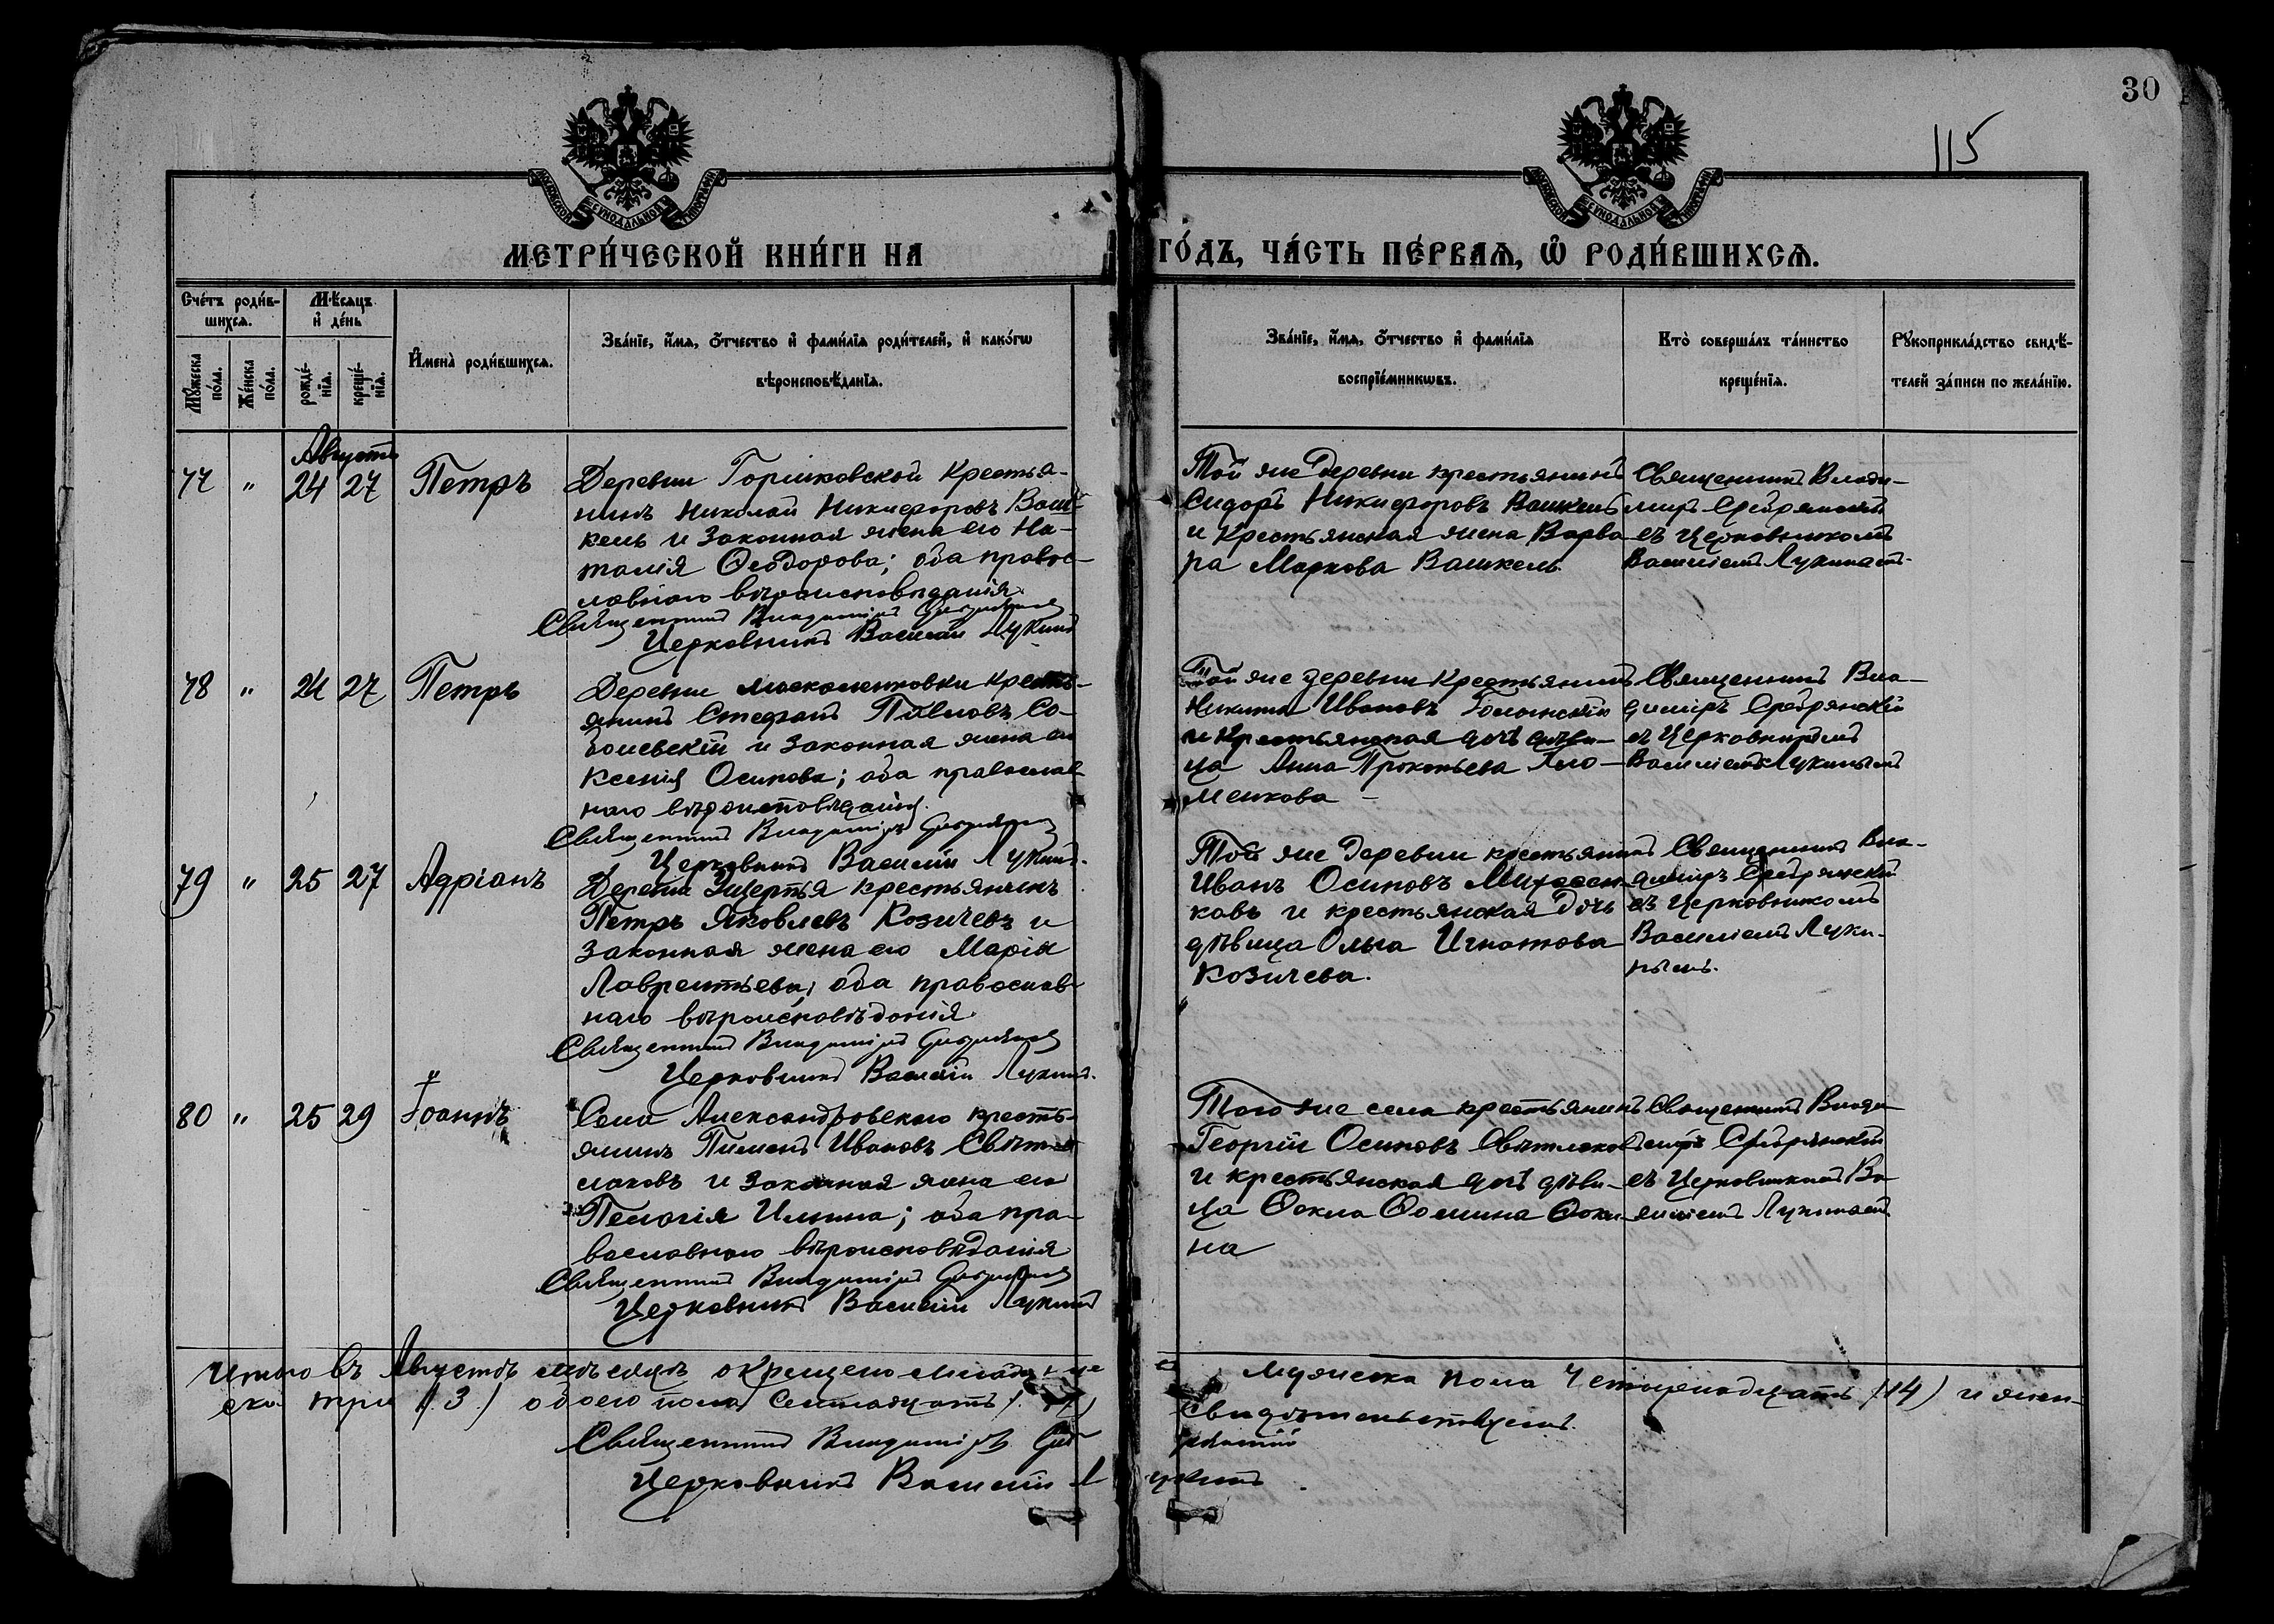 30
115
МЕТРИ́ЧЕСКОЙ КНИ́ГИ НА
ГО́ДЪ, ЧА́СТЬ ПЕ́РВАѦ, Ѡ҆ РОДИ́ВШИХСѦ.
Сче́тъ роди́в-
шихсѧ.
Мѣ́сѧцъ
и҆ де́нь
Мꙋ́жеска
по́ла.
Же́нска
по́ла.
рожде́-
нїѧ.
креще́-
нїѧ.
И҆мена̀ роди́вшихсѧ.
Зва́нїе, и҆́мѧ, ѻ҆́тчество и҆ фами́лїѧ роди́телей, и҆ како́гѡ
вѣроисповѣ́данїѧ.
Зва́нїе, и҆́мѧ, ѻ҆́тчество и҆ фами́лїѧ
воспрїе́мникѡвъ.
Кто̀ соверша́лъ та́инство
креще́нїѧ.
Рꙋкоприкла́дство свидѣ́-
телей за́писи по жела́нїю.
Августъ
77 " 24 27 Петръ
Деревни Горшковской Крестья-
нинъ Николай Никифоровъ Ваш-
кель и Законная жена его На-
талія Ѳеодорова; оба правос-
лавнаго вѣроисповѣданія.
Священникъ Владиміръ Сребрянскій
Церковникъ Василій Лукинъ
Той же Деревни крестьянинъ
Сидоръ Никифоровъ Вашкель
и Крестьянская жена Варва-
ра Маркова Вашкель.
Священникъ Влади-
міръ Сребрянскій
съ Церковникомъ
Василіемъ Лукинымъ.
78 " 24 27 Петръ
Деревни Крестья-
янинъ Стефанъ Павловъ Со-
болевскій и Законная жена его
Ксенія Осипова; оба православ-
наго вѣроисповѣданія.
Священникъ Владиміръ Сребрянскій
Церковникъ Василій Лукинъ.
Той же деревни Крестьянинъ
Никита Ивановъ
и Крестьянская дочь дѣви-
ца Анна Прокопьева
Священникъ Вла-
диміръ Сребрянскій
съ Церковникомъ
Василіемъ Лукинымъ
79 " 25 27 Адріанъ
Деревни крестьянинъ
Петръ Яковлевъ Козичевъ и
Законная жена его Марія
Лаврентьева; оба православ-
наго вѣроисповѣданія.
Священникъ Владиміръ Сребрянскій
Церковникъ Василій Лукинъ.
Той же Деревни крестьянинъ
Иванъ Осиповъ
ковъ и крестьянская Дочь
дѣвица Ольга Игнатова
Козичева.
Священникъ Вла-
диміръ Сребрянскій
съ Церковникомъ
Василіемъ Луки-
нымъ.
80 " 25 29 Іоаннъ
Села Александровскаго кресть-
янинъ Пименъ Ивановъ Свѣт-
лаковъ и Законная жена его
Пелагія Ильина; оба пра-
вославнаго вѣроисповѣданія
Священникъ Владиміръ Сребрянскій
Церковникъ Василій Лукинъ
Того же села крестьянинъ
Георгій Осиповъ Свѣтлаковъ
и крестьянская дочь дѣви-
ца Ѳекла Ѳомина Ѳоки-
на
Священникъ Влади-
міръ Сребрянскій
съ Церковникомъ Ва-
силіемъ Лукинымъ.
Итого въ Августѣ мѣсяцѣ окрещено мужеска пола Четырнадцать (14) и жен-
ска три (3) обоего пола Семнадцать
Свидѣтельствуемъ.
Священникъ Владиміръ Сребрянскій
Церковникъ Василій Лукинъ.